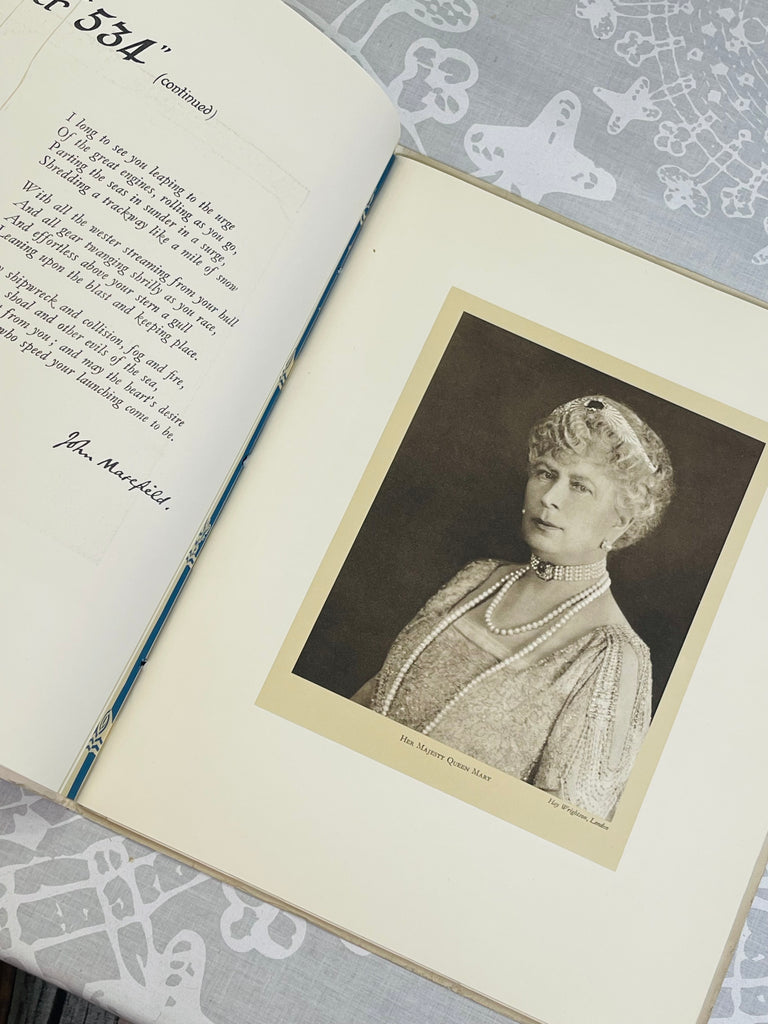 "534"
(continued)
I long to see you leaping to the urge
Of the great engines, rolling as you go,
Parting the seas in sunder in a surge,
Shredding a trackway like a mile of snow
With all the wester streaming from your hull
And all gear twanging shrilly as you race,
And effortless above your stern a gull
Leaning upon the blast and keeping place.
shipwreck and collision, fog and fire,
shoal and other evils of the sea,
from you; and may the heart's desire
who speed your launching come to be.
John Masefield.
HER MAJESTY QUEEN MARY
Hay Wrightson, London